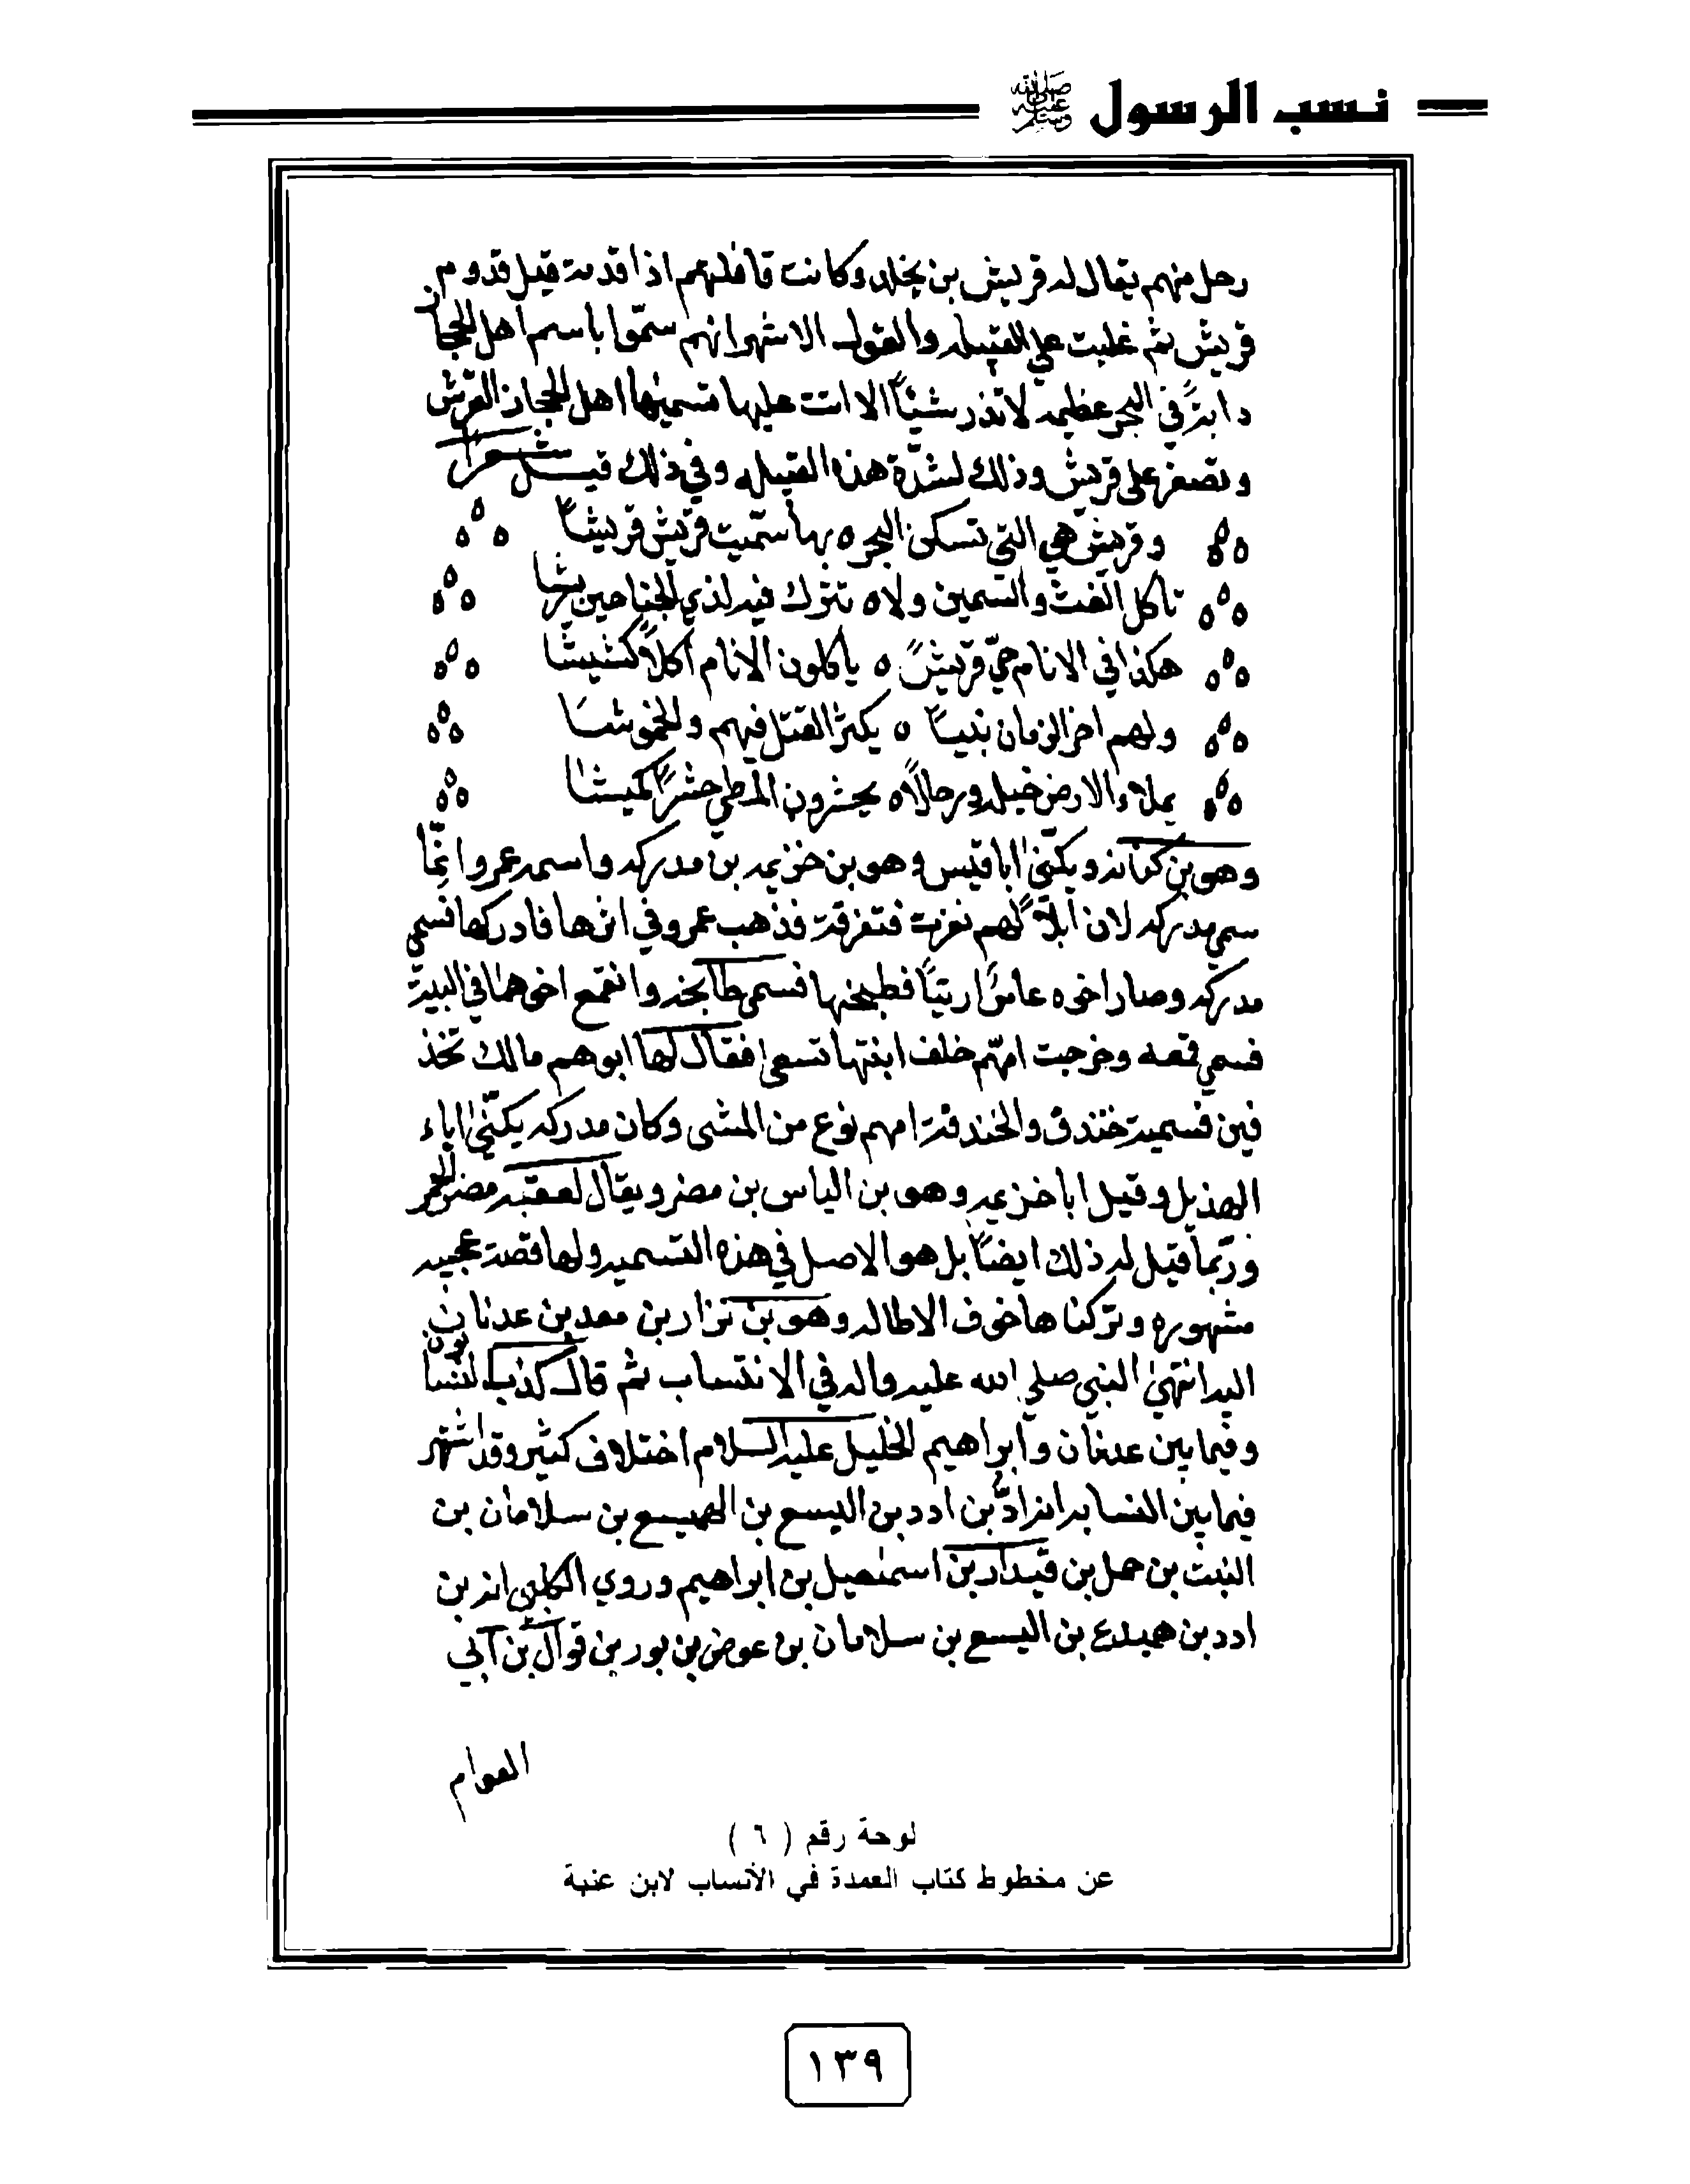 نسب الرسول ﷺ
رجل منهم يقال له قريش بن يخلد وكانت قافلتهم اذا قدمت قيل قدوم
قريش ثم غلبت علي القبيله والقول الاشهر انهم سمّوا باسم اهل الحجاز
دابةً في البحر عظيمه لا تذر شيئاً الا اتت عليها تسميها اهل الحجاز القرش
وتصغر على قريش وذلك لشدّة هذه القبيله وفي ذلك قيل شعرا
وقريش هي التي تسكن البحر ه بها سمّيت قريش قريشاً
تاكل الغث والسمين ولا ه تترك فيه لذي الجناحين ريشا
هكذا في الانام حيّ قريشً ه ياكلون الانام اكلاً كشيشا
ولهم اخر الزمان نبياً ه يكثر القتل فيهم والخموشا
يملاء الارض خيله ورجالاً ه يحشرون المطي حشراً كميشا
وهو بن كنانه ويكنّى ابا قيس وهو بن خزيمه بن مدركه واسمه عمرو انّما
سمي مدركه لان أبلاً لهم نفرت فتفرقت فذهب عمرو في اثرها فادركها فسمي
مدركه وصاد اخوه عامرً ارنبًا فطبخها فسمى طابخه وانقمع اخوهما في البيت
فسمي قمعه وخرجت امهّم خلف ابنتها تسعى فقال لها ابوهم مالك تخذ
فين فسميت خندف والخندفة امهم نوع من المشى وكان مدركه يكنّى اباء
الهذيل وقيل ابا خزيمه وهو بن الياس بن مضر ويقال لعقبه مضر الحمر
وربّما قيل له ذلك ايضاً بل هو الاصل في هذه التسميه ولها قصة عجيبه
مشهوره وتركناها خوف الاطاله وهو بن نزار بن معد بن عدنان
اليه انتهى النبي صلي الله عليه واله في الانتساب ثم قال كذب النسابون
وفيما بين عدنان وابراهيم الخليل عليه السلام اختلاف كثير وقد اشتهر
فيما بين النسابه انه ادّ بن ادد بن اليسع بن الهميسع بن سلامان بن
النبت بن حمل بن قيدار بن اسمعيل بن ابراهيم وروي الكلبي انه بن
ادد بن هميدع بن اليسع بن سلامان بن عوض بن بور بن قوال بن آبي
العوام
لوحة رقم ( ٦ )
عن مخطوط كتاب العمدة في الأنساب لابن عنبة
١٣٩